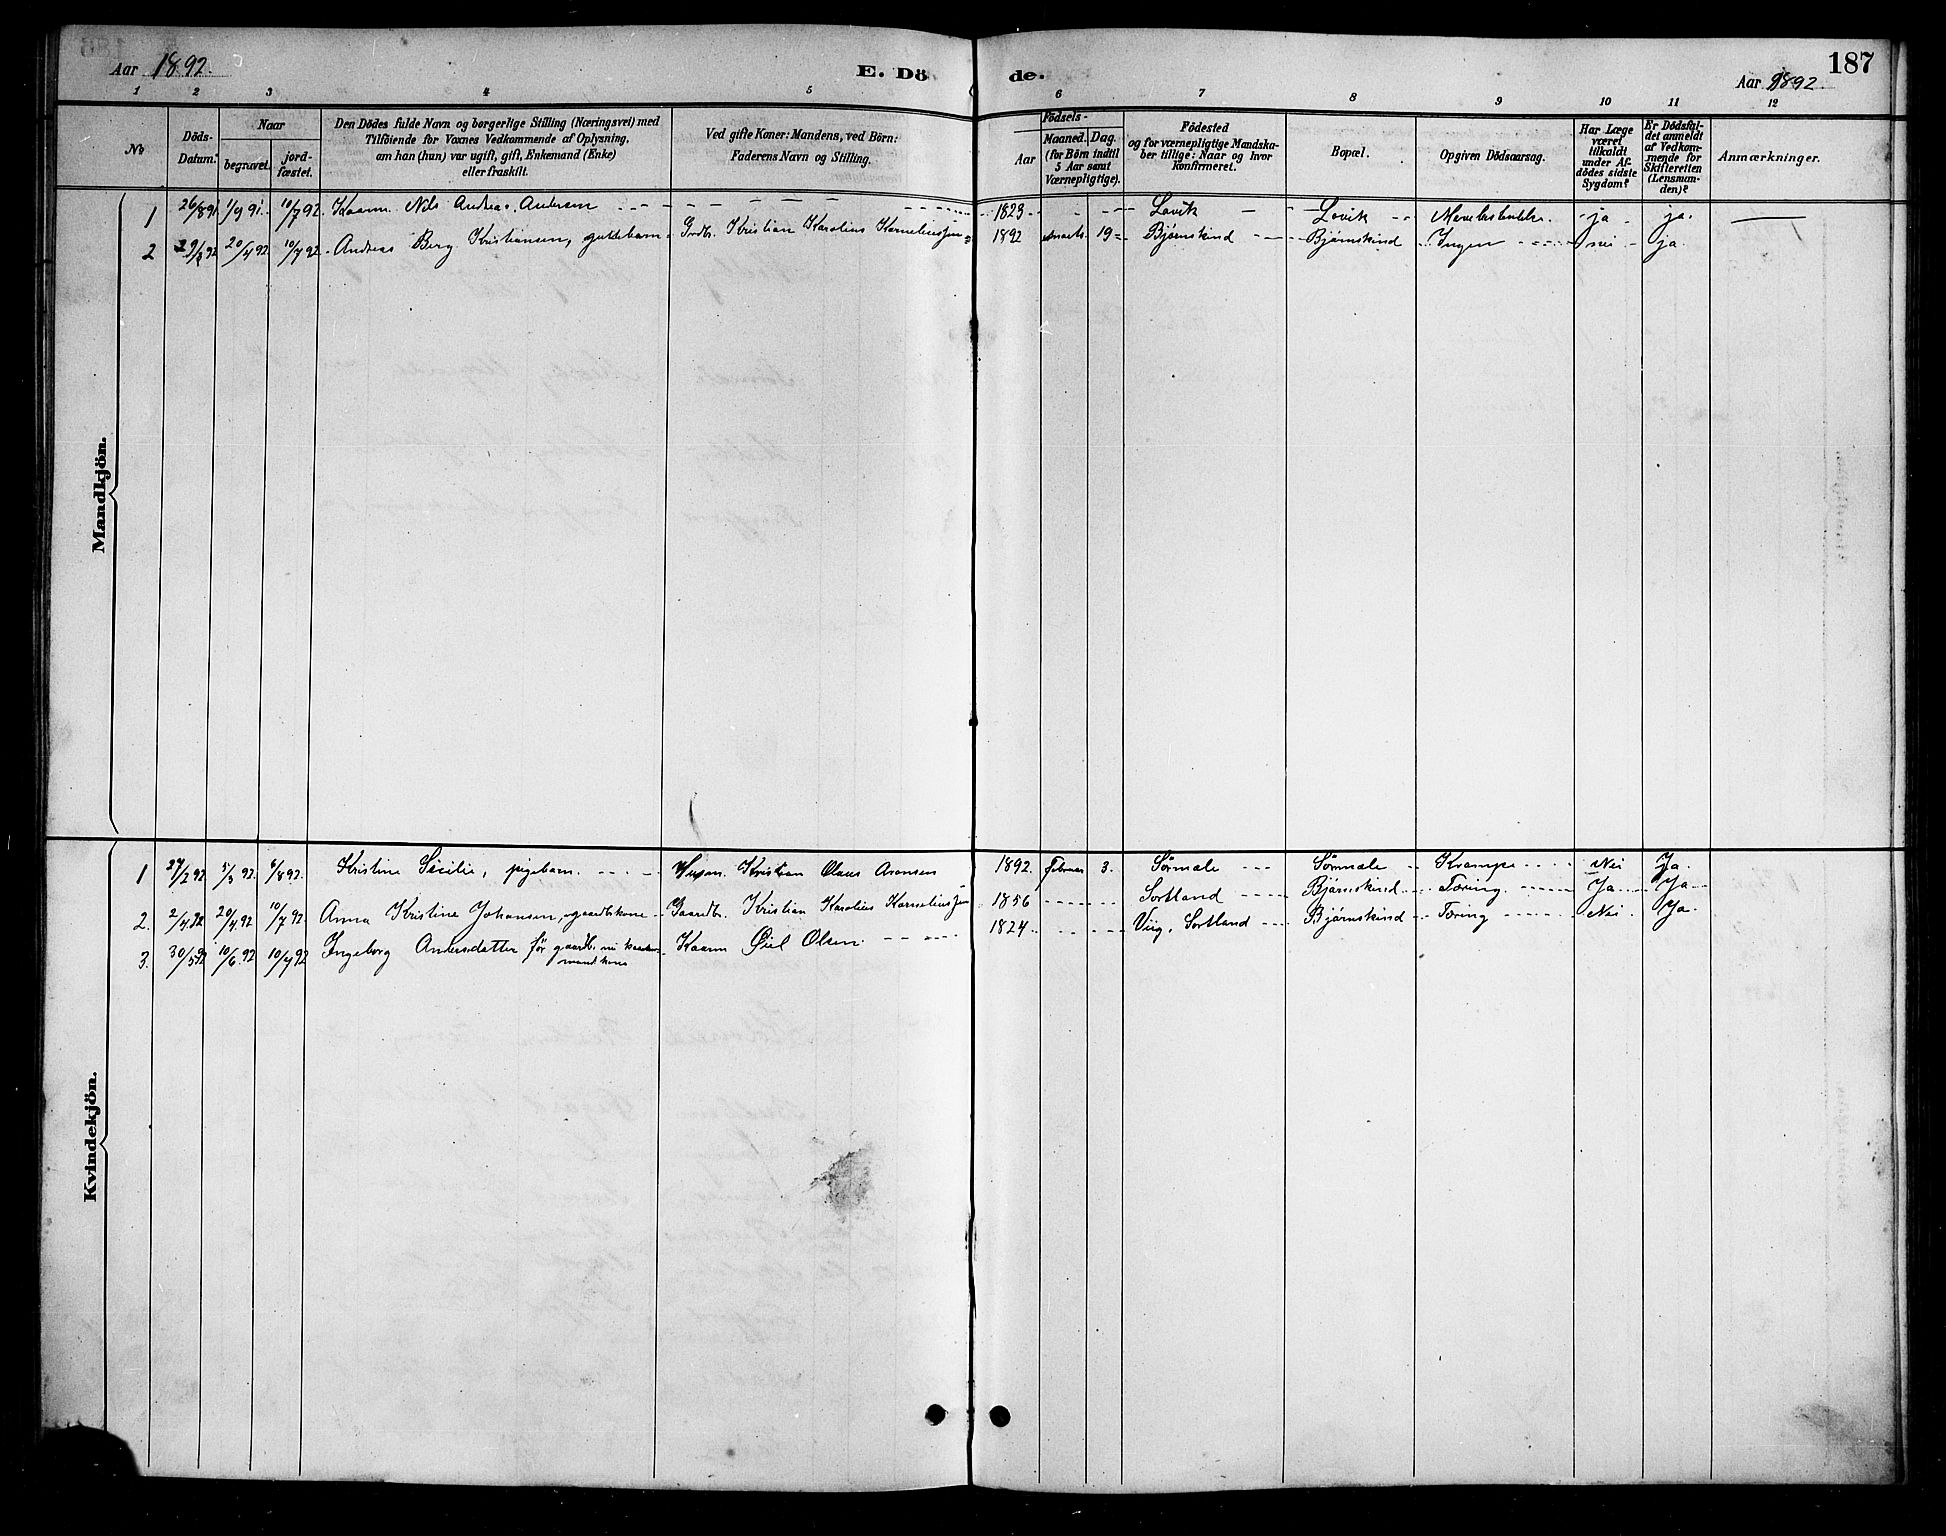 Aar 1892.
E. Dö de.
187
Aar 1892.
1 2 3 4 5 6 7 8 9 10 11 12
No
Döds-Datum.
Naar
begravet.
jord-fæstet.
Den Dödes fulde Navn og borgerlige Stilling (Næringsvei) med
Tilföiende for Voxnes Vedkommende af Oplysning,
om han (hun) var ugift, gift, Enkemand (Enke)
eller fraskilt.
Ved gifte Koner: Mandens, ved Börn:
Faderens Navn og Stilling.
Födsels-
Aar
Maaned. Dag.
(for Börn indtil
5 Aar samt
Værnepligtige).
Födested
og for værnepligtige Mandska-
ber tillige: Naar og hvor
konfirmeret.
Bopæl.
Opgiven Dödsaarsag.
Har Læge
været
tilkaldt
under Af-
dödes sidste
Sygdom?
Er Dödsfal-
det anmeldt
af Vedkom-
mende for
Skifteretten
(Lensman-
den)?
Anmærkninger.
Mandkjön.
1 26/8 91 1/9 91. 10/7 92 Kaarm. Nils Andreas Andersen 1823 Lovik Lovik ja ja.
2 29/3 92 20/4 92 10/7 92 Andreas Berg Kristiansen, guttebarn Grdbr. Kristian Karolius Korneliussen 1892 marts 19 Bjørnskind Bjørnskind Ingen nei ja
Kvindekjön.
1 27/2 92 5/3 92. 6/8 92. Kristine Secilie, pigebarn. Husm. Kristian Olaus Aronsen 1892. februar 3. Sørmæle Sørmæle Krampe Nei Ja.
2. 2/4 92 20/4 92 10/7 92 Anna Kristine Johansen, gaardbr.kone Gaardbr. Kristian Karolius Korneliussen 1856 Sortland Bjørnskind Tæring. Ja Ja
3. 30/5 92 10/6. 92 10/7 92 Ingeborg Andersdatter før gaardb. nu kaar-
mandkone Kaarm Øiel Olsen 1824 Viig, Sortland Bjørnskind Tæring Nei. Ja